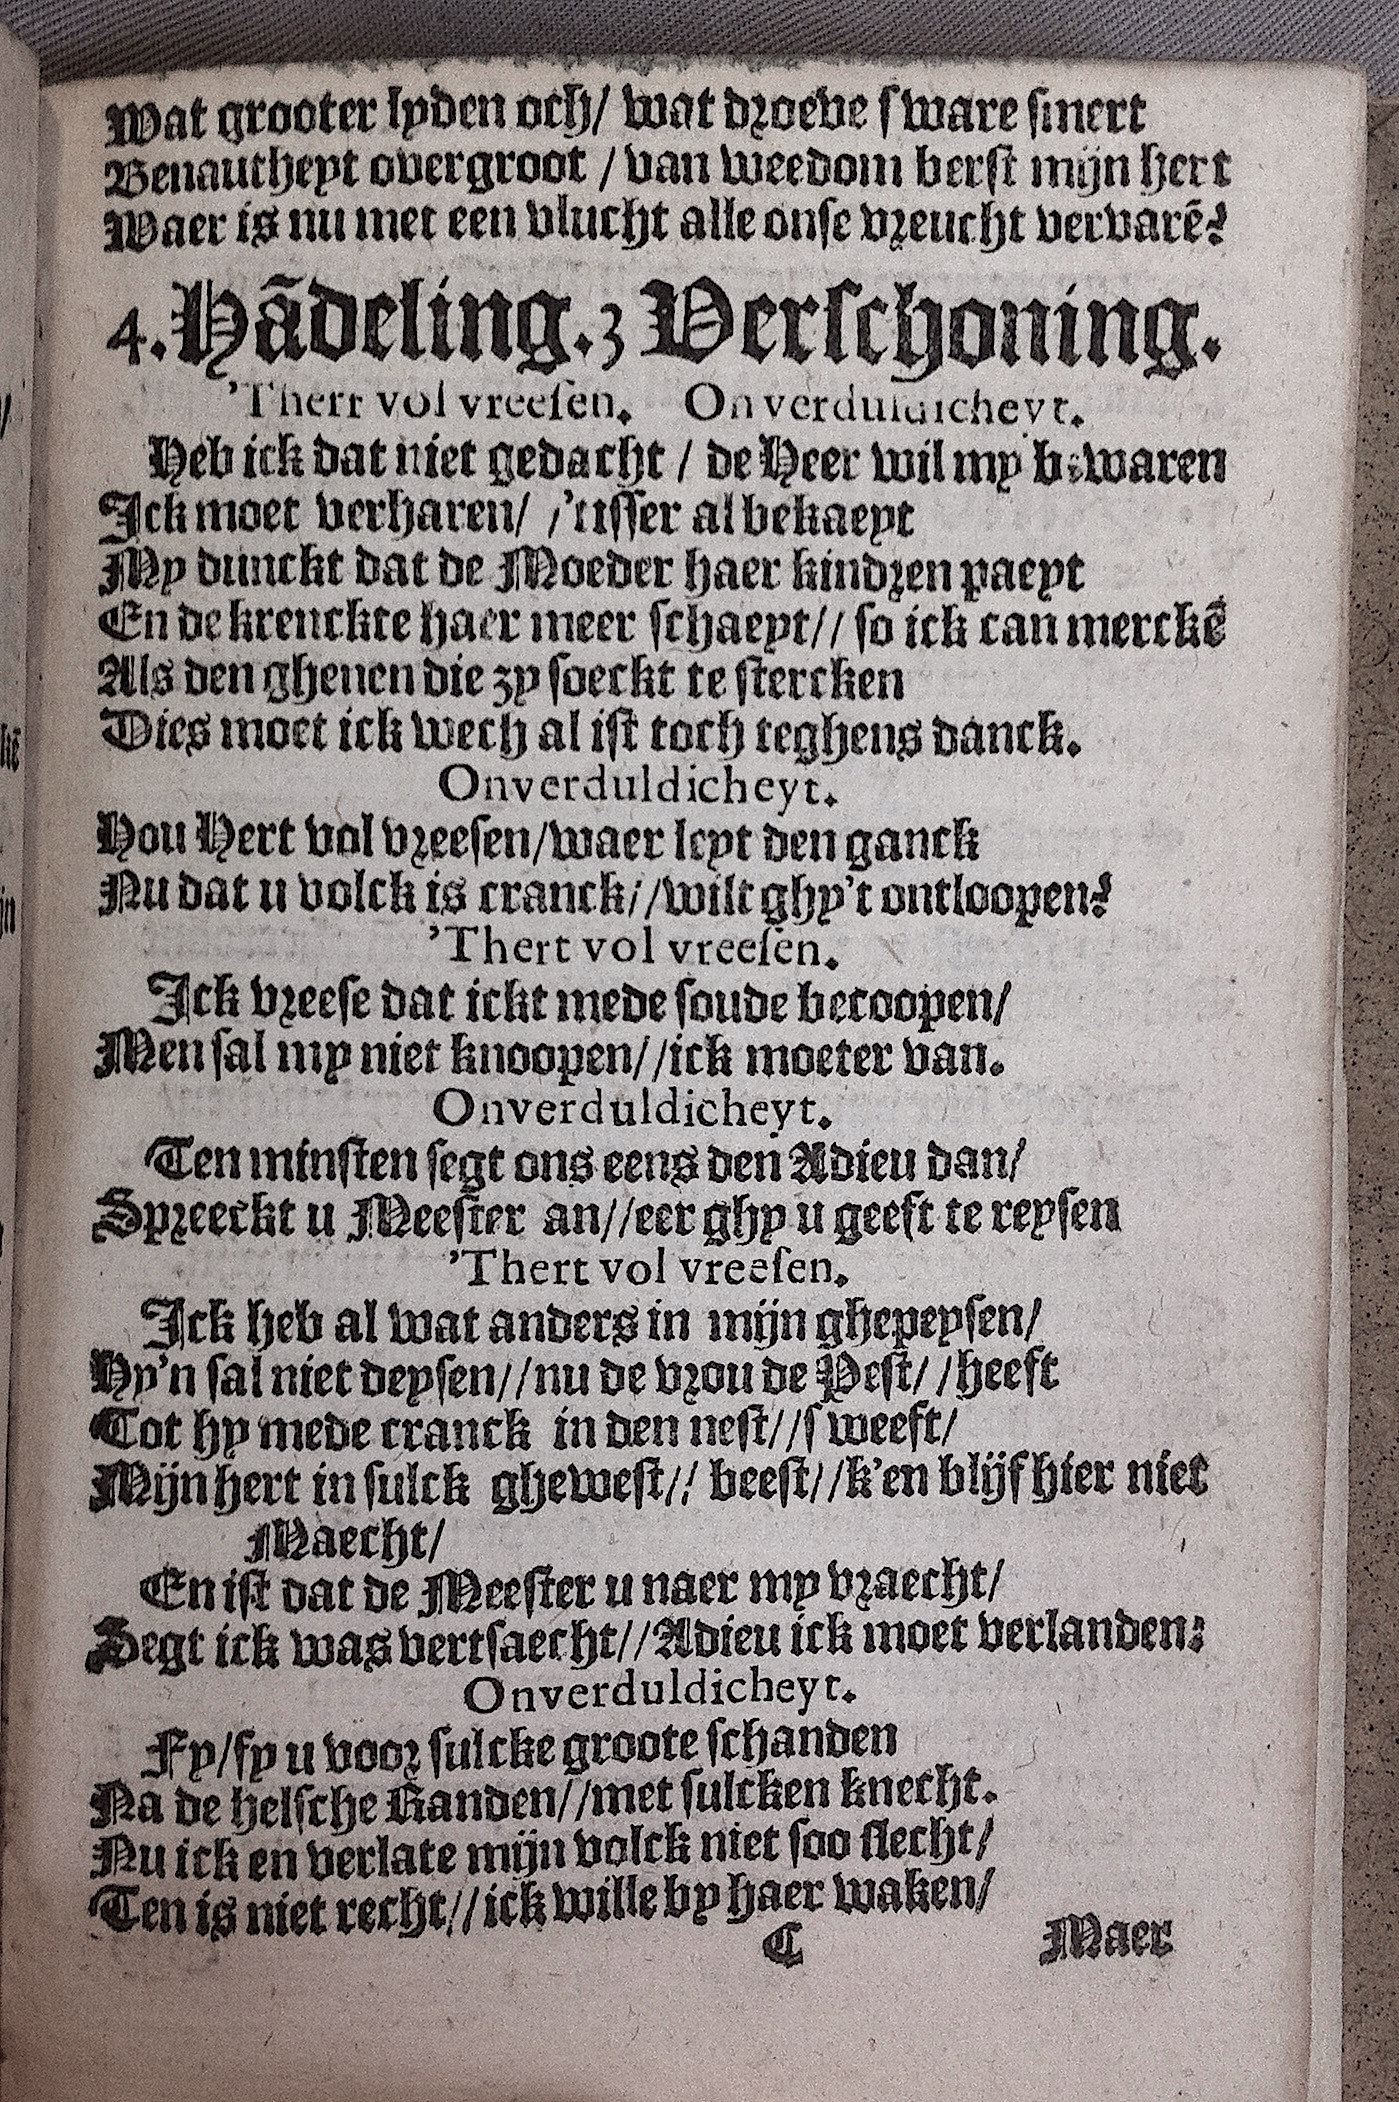 Wat grooter lyden och/ wat droeve sware smert
Benautheyt overgroot / van weedom berst mijn hert
Waer is nu met een vlucht alle onse vreucht vervarē?
4. Hādeling. 3 Verschoning.
'Thert vol vreesen. Onverduldicheyt.
Heb ick dat niet gedacht / de Heer wil my bewaren
Ick moet verharen/ /'tisser al bekaeyt
My dunckt dat de Moeder haer kindren paeyt
En de krenckte haer meer schaeyt// so ick can merckē
Als den ghenen die zy soeckt te stercken
Dies moet ick wech al ist toch teghens danck.
Onverduldicheyt.
Hou Hert vol vreesen/waer leyt den ganck
Nu dat u volck is cranck//wilt ghy't ontloopen?
'Thert vol vreesen.
Ick vreese dat ickt mede soude becoopen/
Men sal my niet knoopen//ick moeter van.
Onverduldicheyt.
Ten minsten segt ons eens den Adieu dan/
Spreeckt u Meester an//eer ghy u geeft te reysen
'Thert vol vreesen.
Ick heb al wat anders in mijn ghepeysen/
Hy'n sal niet deysen//nu de vrou de Pest//heeft
Tot hy mede cranck in den nest//sweeft/
Mijn hert in sulck ghewest// beest//k'en blijf hier niet
Maecht/
En ist dat de Meester u naer my vraecht/
Segt ick was vertsaecht//Adieu ick moet verlanden:
Onverduldicheyt.
Fy/fy u voor sulcke groote schanden
Na de helsche Randen//met sulcken knecht.
Nu ick en verlate mijn volck niet soo slecht/
Ten is niet recht//ick wille by haer waken/
C Maer